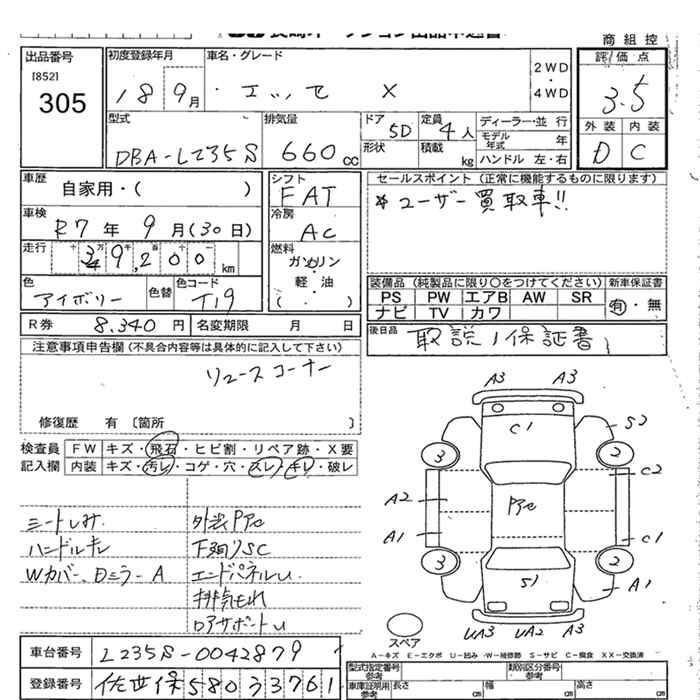 商 組 控
出品番号
[852]
305
初度登録年月
18 9月
車名・グレード
エッセ X
2WD
・
4WD
評 価 点
3.5
外 装 内 装
D C
型式
DBA-L235S
排気量
660 cc
ドア
5D
形状
定員
4人
積載
kg
ディーラー・並 行
モデル年式 年
ハンドル 左・右
車歴
自家用・( )
シフト
FAT
セールスポイント (正常に機能するものに限ります)
* ユーザー買取車!!
車検
R7 年 9 月 (30 日)
冷房
AC
走行
十 万 千 百 十
9,200 km
燃料
ガソリン
・
軽 ・ 油
( . )
色
アイボリー
色替
色コード
T19
装備品 (純製品に限り○をつけてください)
新車保証書
PS PW エアB AW SR
ナビ TV カワ
有・無
R券 8,340 円
名変期限 月 日
後日品
取説/保証書
注意事項申告欄 (不具合内容等は具体的に記入して下さい)
リユースコーナー
修復歴 有 〔箇所 〕
検査員
記入欄
FW キズ・飛石・ヒビ割・リペア跡・X要
内装 キズ・汚レ・コゲ・穴・スレ・キレ・破レ
シートしみ 外装Pアc
ハンドルキレ 下廻りSC
Wカバー、Dミラー A エンドパネルU
排気もれ
ロアサポートU
A3 A3
C1
S2
3 2
A2
C2
Pアc
A1
C1
3 2
S1
A1
UA3 UA2 A3
スペア
A-キズ E-エクボ U-凹み W-補修跡 S-サビ C-腐食 XX-交換済
車台番号 L235S-0042879
登録番号 佐世保580う3761
型式指定番号
参考
類別区分番号
参考
車庫証明用
参考
長さ cm
幅 cm
高さ cm